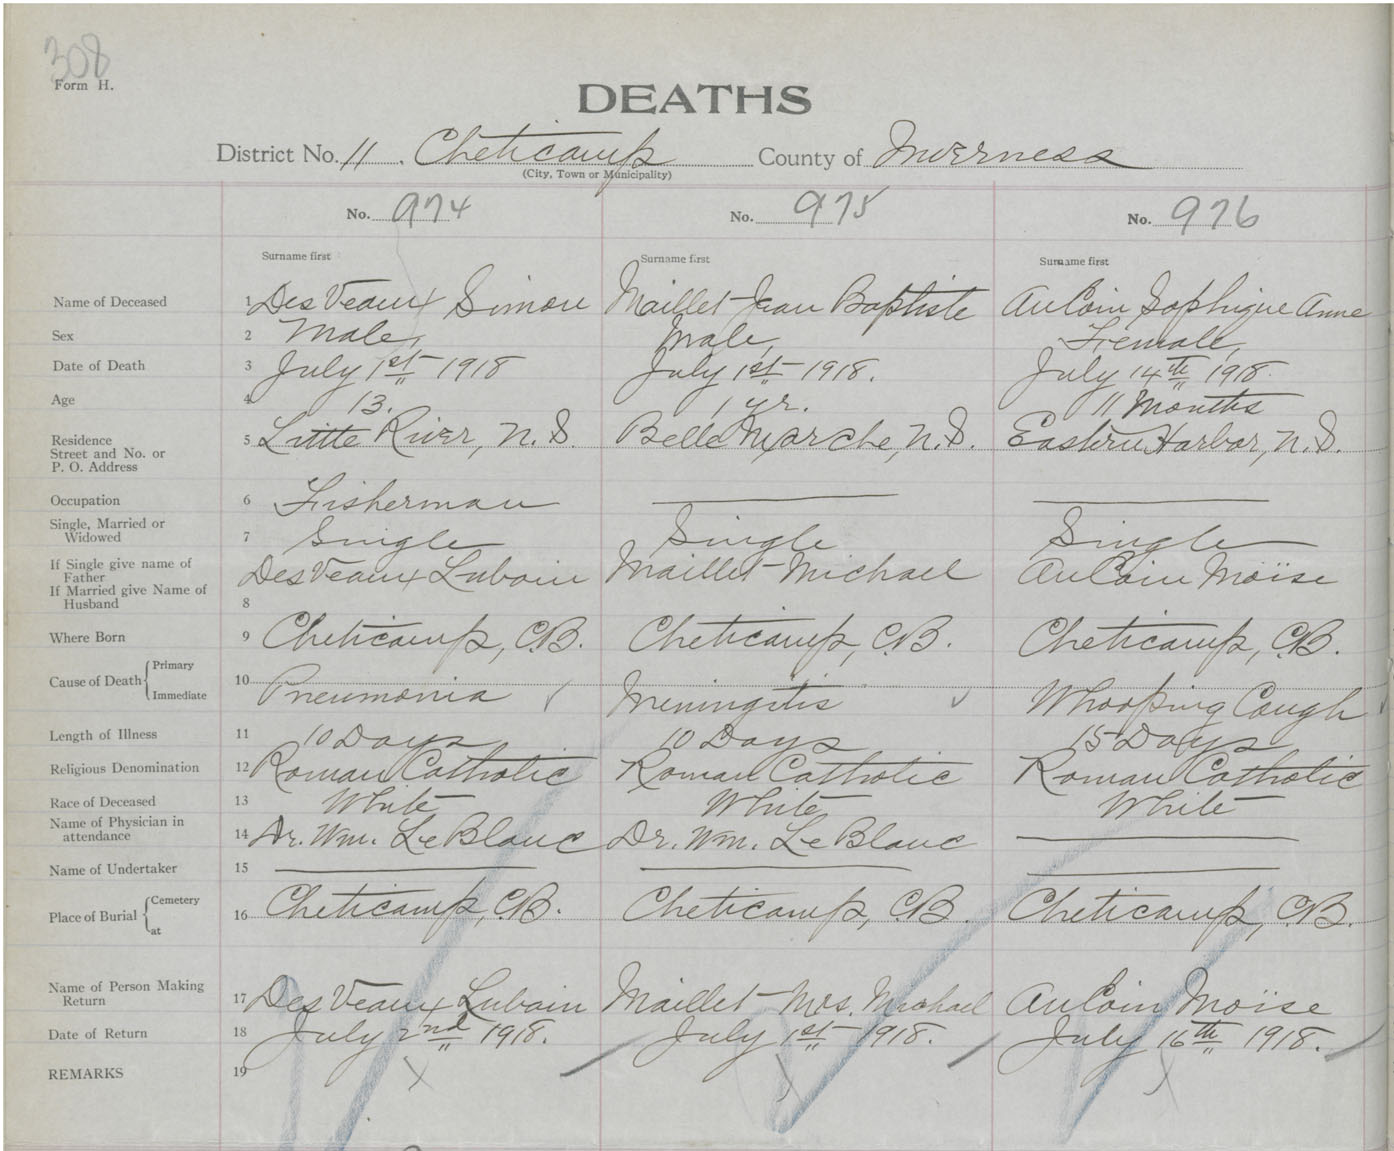 308
Form H.
DEATHS
District No. 11. Cheticamp County of Inverness
(City, Town or Municipality)
No. 974 No. 975 No. 976
Surname first Surname first Surname first
Name of Deceased 1 DesVeaux Simon Maillet Jean Baptiste AuCoin Sophique Anne
Sex 2 Male, Male, Female,
Date of Death 3 July 1st 1918 July 1st 1918. July 14th 1918.
Age 4 13. 1 yr. 11 Months
Residence
Street and No. or
P. O. Address 5 Little River, N.S. Belle Marche, N.S. Eastern Harbor, N.S.
Occupation 6 Fisherman
Single, Married or
Widowed 7 Single Single Single
If Single give name of
Father DesVeaux Lubain Maillet Michael AuCoin Moïse
If Married give Name of
Husband 8
Where Born 9 Cheticamp, C.B. Cheticamp, C.B. Cheticamp, C.B.
Cause of Death { Primary
Immediate 10 Pneumonia Meningitis Whooping Cough
Length of Illness 11 10 Days 10 Days 15 Days
Religious Denomination 12 Roman Catholic Roman Catholic Roman Catholic
Race of Deceased 13 White White White
Name of Physician in
attendance 14 Dr. Wm. LeBlanc Dr. Wm. LeBlanc
Name of Undertaker 15
Place of Burial { Cemetery
at 16 Cheticamp, C.B. Cheticamp, C.B. Cheticamp, C.B.
Name of Person Making
Return 17 DesVeaux Lubain Maillet Mrs. Michael AuCoin Moïse
Date of Return 18 July 2nd 1918. July 1st 1918. July 16th 1918.
REMARKS 19